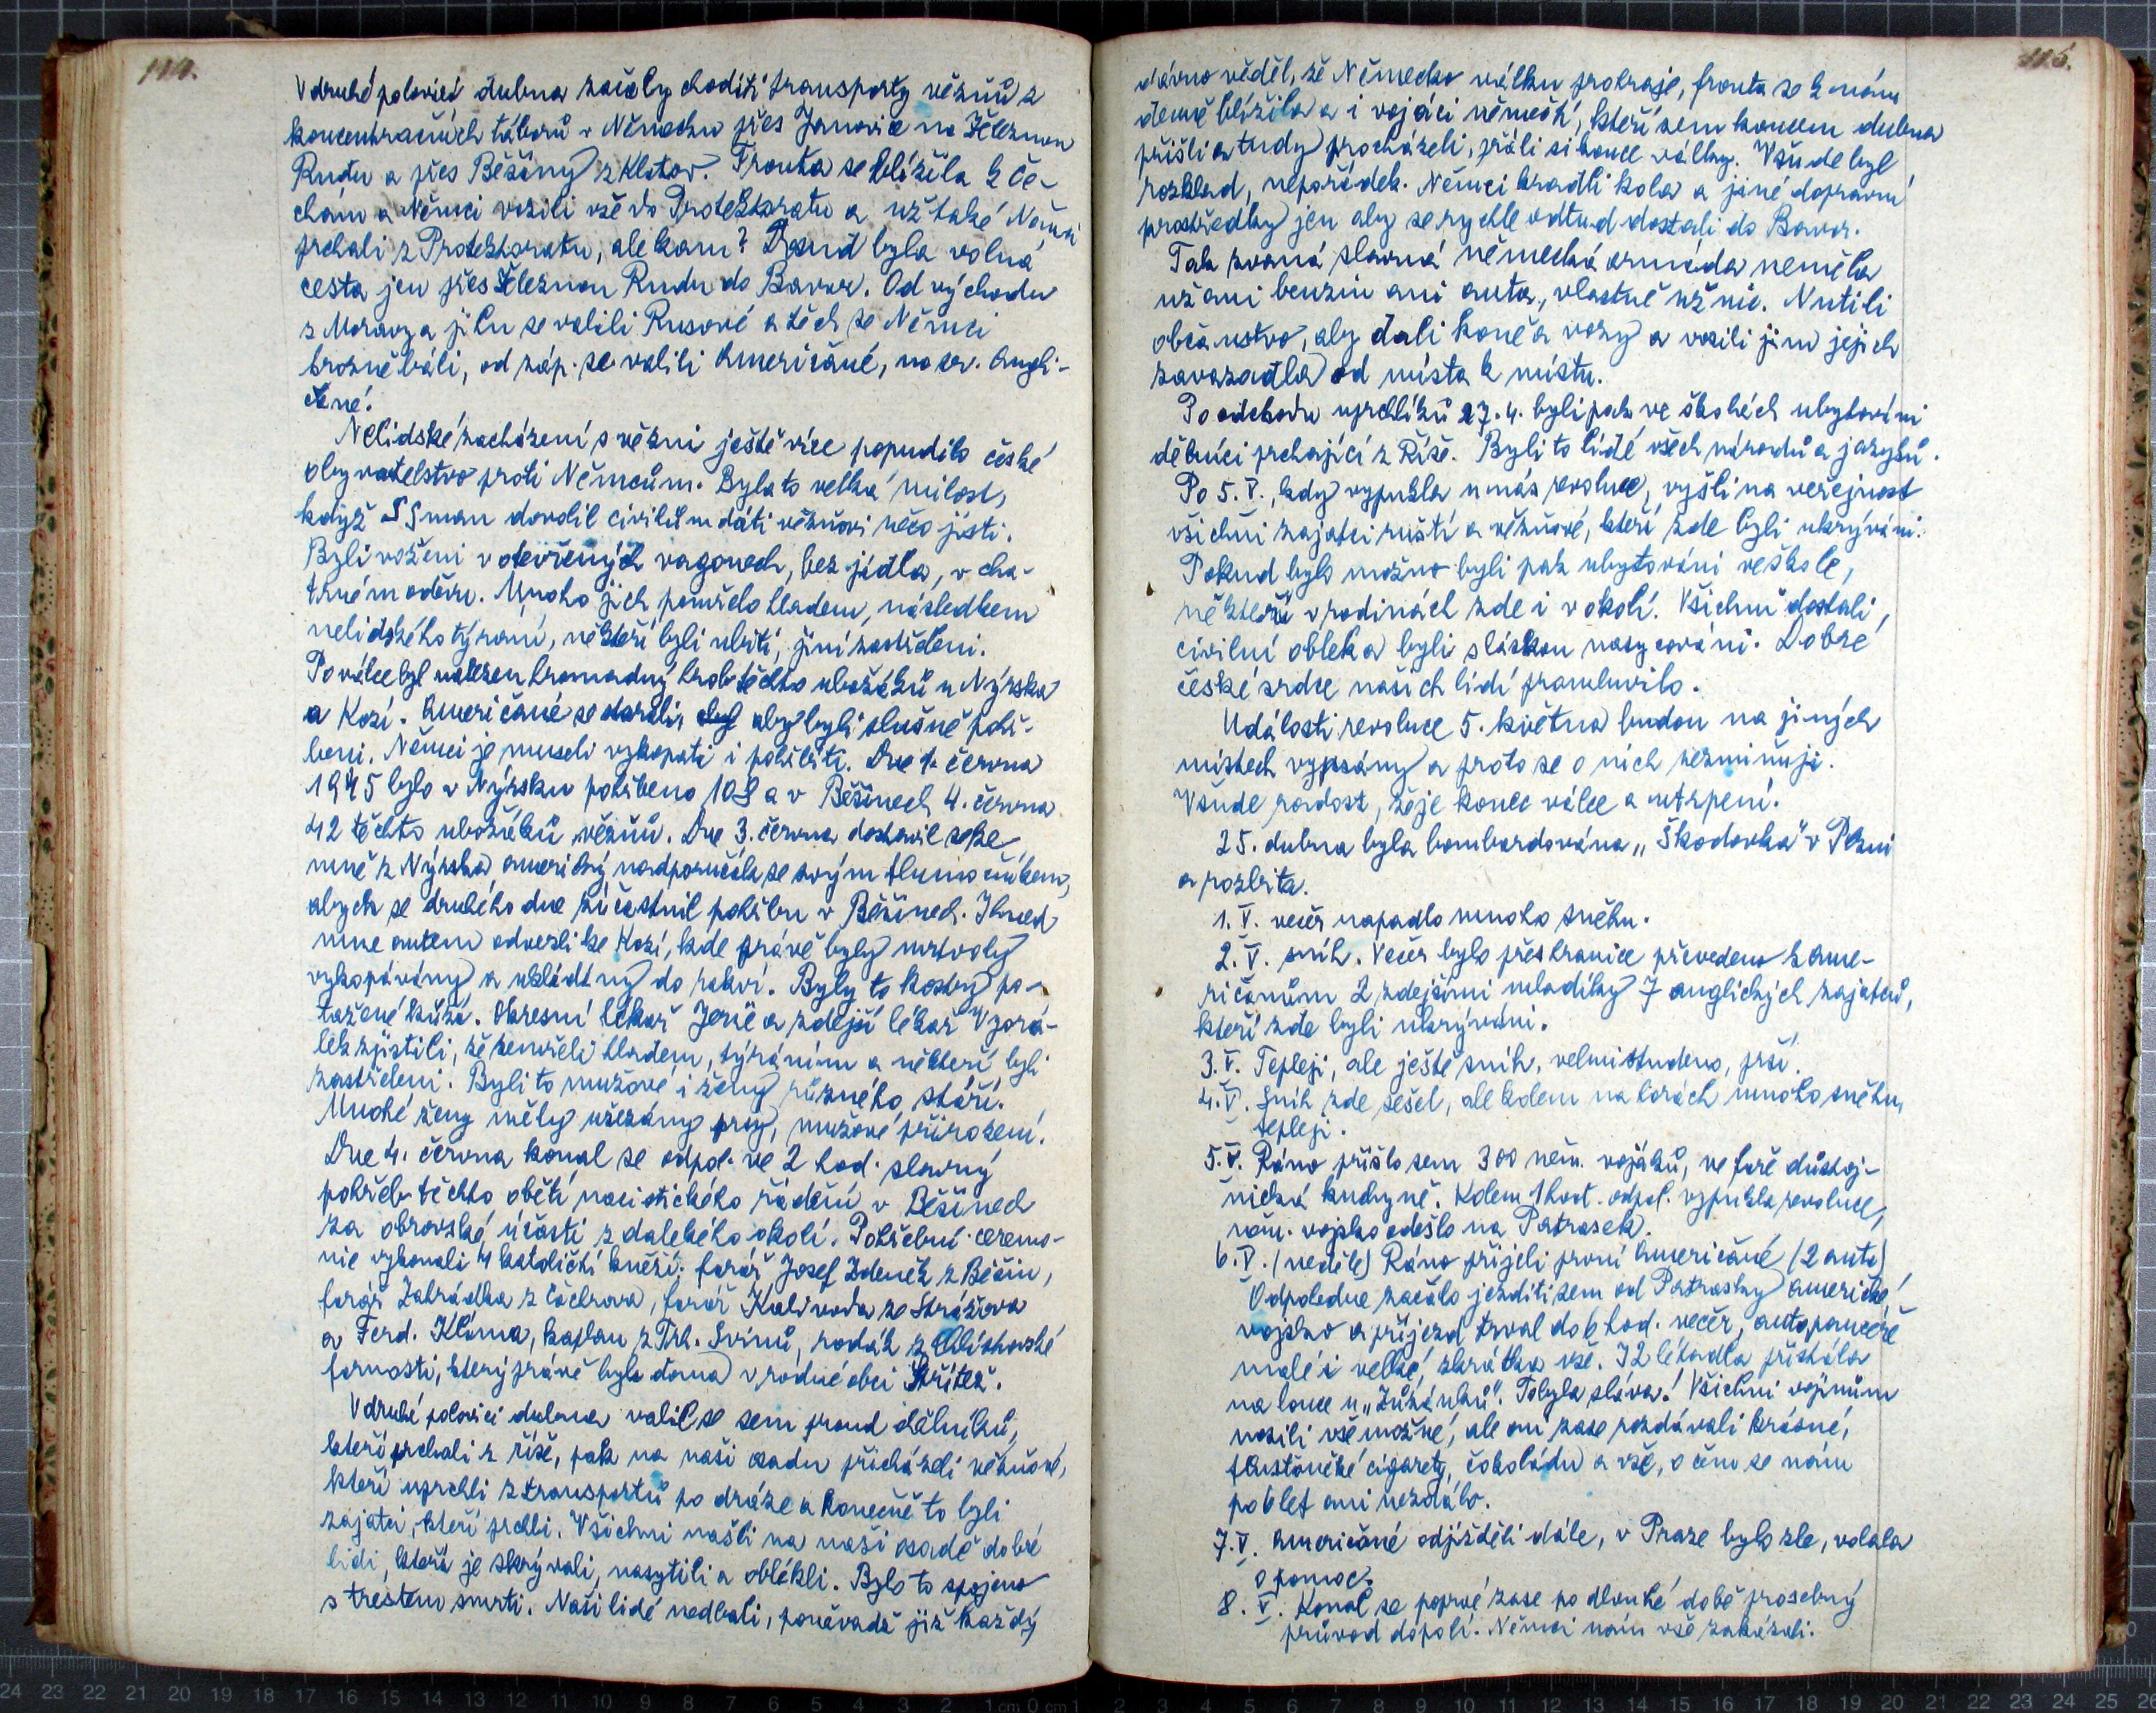 114.
V druhé polovici dubna začaly choditi transporty vězňů z
koncentračních táborů v Německu přes Janovice na Železnou
Rudu a přes Běšiny z Klatov. Fronta se blížila k Če-
chám a Němci vozili vše do Protektorátu a už také Němci
prchali z Protektorátu, ale kam? Dosud byla volná
cesta jen přes Železnou Rudu do Bavor. Od východu
z Moravy a jihu se valili Rusové a těch se Němci
hrozně báli, od záp. se valili Američané, na sev. Angli-
čané.
Nelidské zacházení s vězni ještě více popudilo české
obyvatelstvo proti Němcům. Byla to velká milost,
když SSman dovolil civilům dáti vězňovi něco jísti.
Byli voženi v otevřených vagonech, bez jídla, v cha-
trném oděvu. Mnoho jich pomřelo hladem, následkem
nelidského týrání, někteří byli ubiti, jiní zastřeleni.
Po válce byl nalezen hromadný hrob těchto ubožáků u Nýrska
a Kozí. Američané se starali, aby byli slušně pohř-
beni. Němci je museli vykopati i pohřbíti. Dne 1. června
1945 bylo v Nýrsku pohřbeno 108 a v Běšinech 4. června
42 těchto ubožáků vězňů. Dne 3. června dostavil se ke
mně z Nýrska americký nadporučík se svým tlumočníkem,
abych se druhého dne zúčastnil pohřbu v Běšinech. Ihned
mne autem odvezli ke Kozí, kde právě byly mrtvoly
vykopávány a ukládány do rakví. Byly to kostry po-
tažené kůží. Okresní lékař Jerie a zdejší lékař Vzorá-
lek zjistili, že zemřeli hladem, týráním a někteří byli
zastřeleni. Byli to mužové i ženy různého stáří.
Mnohé ženy měly uřezány prsy, mužové přirození.
Dne 4. června konal se odpol. ve 2 hod. slavný
pohřeb těchto obětí nacistického řádění v Běšinech
za obrovské účasti z dalekého okolí. Pohřební ceremo-
nie vykonali 4 katoličtí kněží: farář Josef Zdeněk z Běšin,
farář Zahrádka z Čachrova, farář Kalivoda ze Strážova
a Ferd. Klíma, kaplan z Trh. Svinů, rodák z Chlistovské
farnosti, který právě byl doma v rodné obci Střítež.
V druhé polovici dubna valil se sem proud dělníků,
kteří prchali z říše, pak na naši osadu přicházeli vězňové,
kteří uprchli z transportů po dráze a konečně to byli
zajatci, kteří prchli. Všichni našli na naší osadě dobré
lidi, kteří je skrývali, nasytili a oblékli. Bylo to spojeno
s trestem smrti. Naši lidé nedbali, poněvadž již každý
115.
dávno věděl, že Německo válku prohraje, fronta se k nám
denně blížila a i vojáci němečtí, kteří sem koncem dubna
přišli a tudy procházeli, přáli si konec války. Všude byl
rozklad, nepořádek. Němci kradli kola a jiné dopravní
prostředky jen aby se rychle odtud dostali do Bavor.
Tak zvaná slavná německá armáda neměla
už ani benzin ani auta, vlastně už nic. Nutili
občanstvo, aby dali koně a vozy a vozili jim jejich
zavazadla od místa k místu.
Po odchodu uprchlíků 27.4. byli pak ve školách ubytováni
dělníci prchající z Říše. Byli to lidé všech národů a jazyků.
Po 5. V., kdy vypukla u nás revoluce, vyšli na veřejnost
všichni zajatci ruští a vězňové, kteří zde byli ukrýváni.
Pokud bylo možno byli pak ubytováni ve škole,
někteří v rodinách zde i v okolí. Všichni dostali
civilní oblek a byli s láskou nasycováni. Dobré
české srdce našich lidí promluvilo.
Události revoluce 5. května budou na jiných
místech vypsány a proto se o nich nezmiňuji.
Všude radost, že je konec válce a utrpení.
25. dubna byla bombardována „Škodovka" v Plzni
a rozbita.
1. V. večer napadlo mnoho sněhu.
2. V. sníh. Večer bylo přes hranice převedeno k Ame-
ričanům 2 zdejšími mladíky 7 anglických zajatců,
kteří zde byli ukrýváni.
3. V. Tepleji, ale ještě sníh, velmi studeno, prší.
4. V. Sníh zde sešel, ale kolem na horách mnoho sněhu,
tepleji.
5. V. Ráno přišlo sem 300 něm. vojáků, ve faře důstoj-
nická kuchyně. Kolem 1 hod. odpol. vypukla revoluce,
něm. vojsko odešlo na Patrasek.
6. V. (neděle) Ráno přijeli první Američané (2 auta)
Odpoledne začalo jezditi sem od Patrasky americké
vojsko a příjezd trval do 6 hod. večer, auta pancéře
malé i velké, zkrátka vše. I 2 letadla přistála
na louce u „Zůzánků". To byla sláva! Všichni vojínům
nosili vše možné, ale oni zase rozdávali krásné,
tlusťoučké cigarety, čokoládu a vše, o čem se nám
po 6 let ani nezdálo.
7. V. Američané odjížděli dále, v Praze bylo zle, volala
o pomoc.
8. V. Konal se poprvé zase po dlouhé době prosebný
průvod do polí. Němci nám vše zakázali.